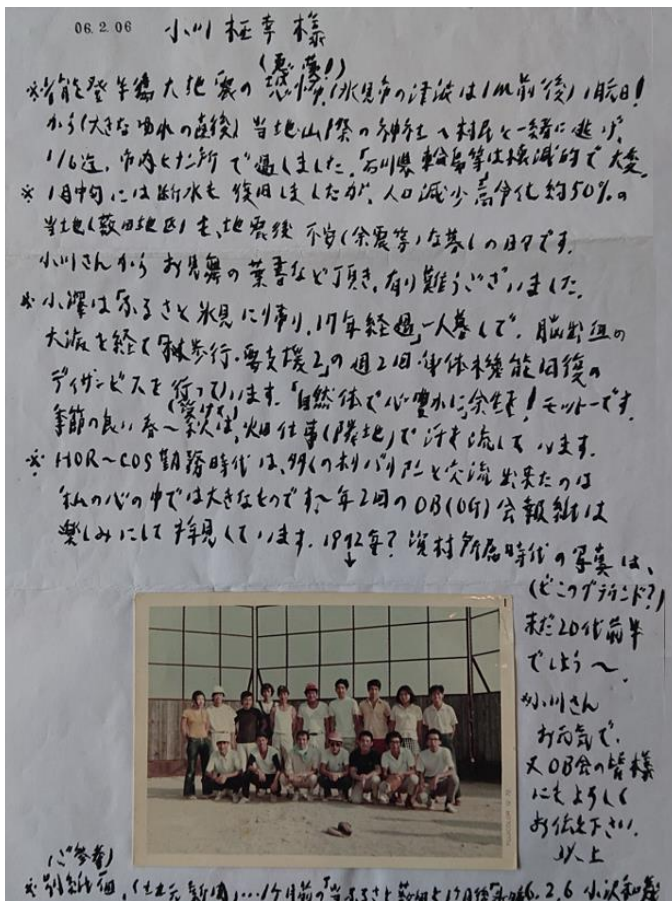 06.2.06 小川 様
(悪夢!)
※ 能登半島大地震の恐怖、(氷見市の津波は1m前後) 1月元日!
から(大きな ゆれの直後) 当地山ノ祭の神社へ村民と一緒に逃げ、
1/6迄、市内 所で過しました。「石川県輪島等は壊滅的で大変。
※ 1月中旬には断水も復旧しましたが、人口減少高令化約50%の
当地(薮田地区)も、地震後 不安(余震等)な暮しの日々です。
小川さんから お見舞の葉書など頂き、有り難うございました。
※ 小澤は「ふるさと氷見に帰り、17年経過」一人暮しで、脳出血の
大病を経て 歩行・要支援2」の週2回・身体機能回復の
デイサービスを行っています。「自然体で心豊かに余生!モットーです。
季節の良い春〜秋は、畑仕事(隣地)で汗を流しています。
※ HOR〜COS勤務時代は、多くの と交流出来たのは
私の心の中では大きなものです、〜年2回のOB(OG)会報紙は
楽しみにして拝見しています。19 2年? 資材 所属時代の写真は、
(どこのグラウンド?)
まだ20代前半
でしょう〜。
※小川さん
お元気で、
又OB会の皆様
にもよろしく
お伝え下さい。
以上
(ご参考)
※ 別紙 、 新聞、…1ヶ月前の「 ふるさと 6.2.6 小沢